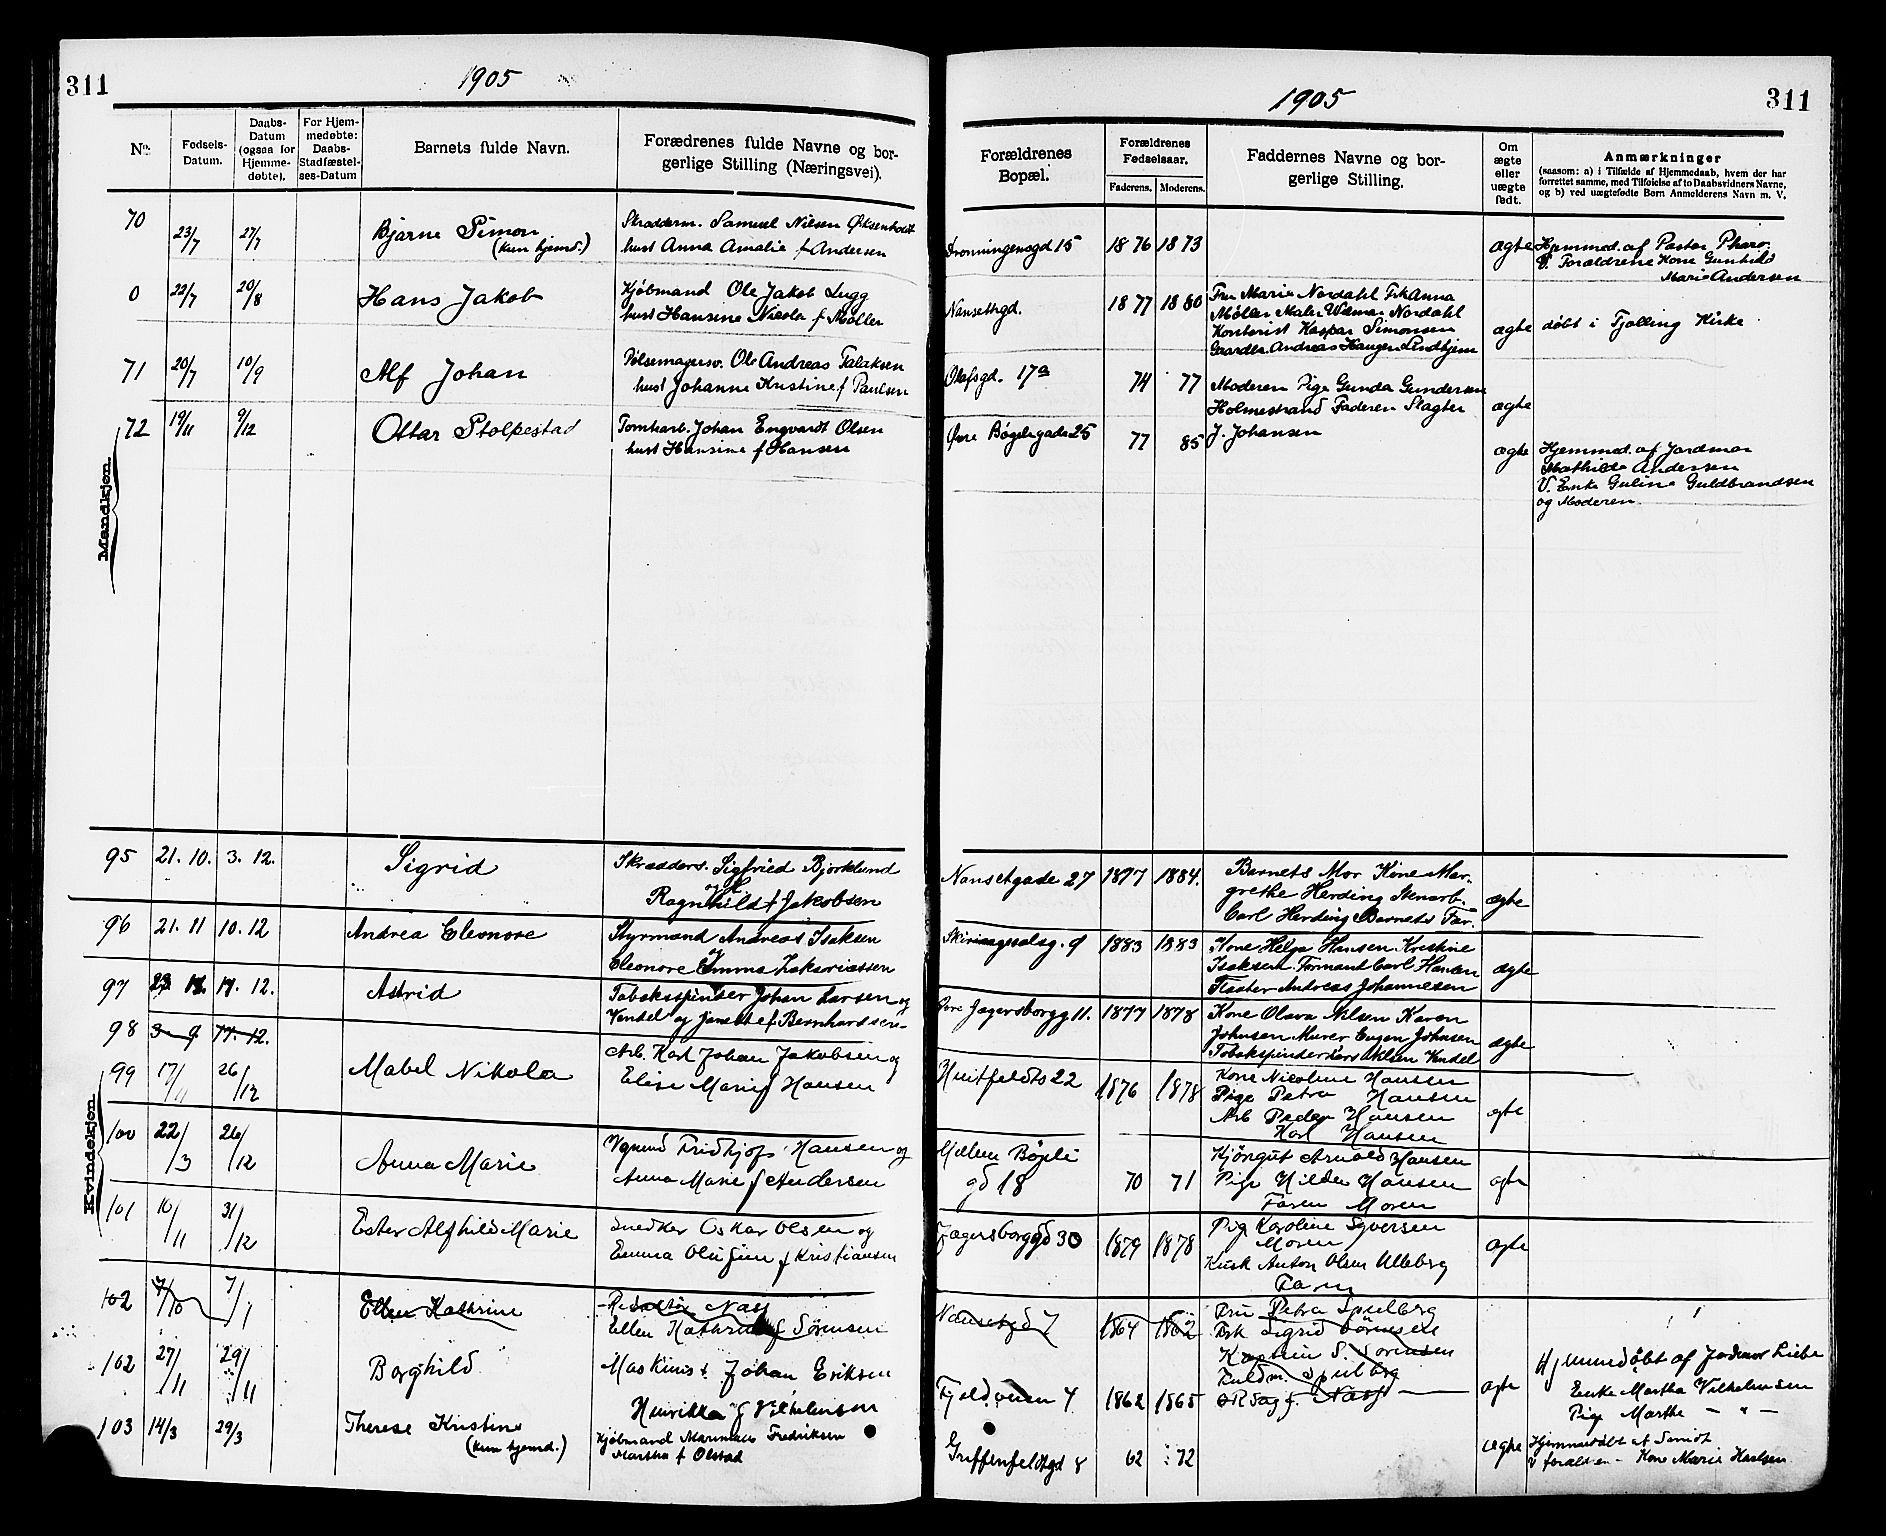 311
1905
No.
Fødsels-
Datum.
Daabs-
Datum
(ogsaa for
Hjemme-
døbte).
For Hjem-
medøbte:
Daabs-
Stadfæstel-
ses-Datum
Barnets fulde Navn.
Forældrenes fulde Navne og bor-
gerlige Stilling (Næringsvei).
70 23/7 27/7 Bjarne Simon
(kun hjemd.)
Skrædderm. Samuel Nilsen
hust Anna Amalie f Andersen
0 22/7 20/8 Hans Jakob
Kjøbmand Ole Jakob Lugg
hust Hansine Nicola f Møller
71 20/7 10/9 Alf Johan
Pølsemagersv. Ole Andreas Falaksen
hust Johanne Kristine f Paulsen
72 19/11 9/12 Ottar Stolpestad
Tomtearb. Johan Engvardt Olsen
hust Hansine f Hansen
Mandkjøn.
95 21. 10. 3. 12. Sigrid
Skrædders. Sigfried Bjorklund
og H.
Ragnhild f Jakobsen
96 21. 11 10. 12 Andrea Eleonore
Styrmand Andreas Isaksen
og
Eleonore Emma Zakariassen
97 17. 12. Astrid
Tobaksspinder Johan Larsen og
Vendel og Janette f. Bernhardsen
98 3 9 17. 12.
99 17/11 26/12 Mabel Nikola
Arb. Karl Johan Jakobsen og
Elise Marie f Hansen
Kvindekjøn
100 22/3 26/12 Anna Marie
Vognmd Fridtjof Hansen og
Anna Marie f Andersen
101 10/11 31/12 Ester Alfhild Marie
Snedker Oskar Olsen og
Emma Olufine f Kristiansen
102 7/10 7/1 Ellen Kathrine
Redaktør Næss
Ellen Kathrine f Sørensen
102 27/11 29/11 Borghild
Maskinist Johan Eriksen
Henrikka f Vilhelmsen
103 14/3 29/3 Therese Kristine
(kun hjemd.)
Kjøbmand Marinius Fredriksen
Martha f Olstad
311
1905
Forældrenes
Bopæl.
Forældrenes
Fødselsaar.
Faderens. Moderens.
Faddernes Navne og bor-
gerlige Stilling.
Om
ægte
eller
uægte
født.
Anmærkninger
(saasom: a) i Tilfælde af Hjemmedaab, hvem der har
forrettet samme, med Tilføielse af to Daabsvidners Navne,
og b) ved uægtefødte Børn Anmelderens Navn m. V.
Dronningensgd 15 1876 1873 ægte
Hjemmed. af Pastor Pharo.
V. Forældrene Kone Gunhild
Marie Andersen
Nansettgd. 1877 1880
Fru Marie Nordahl Frk Anna
Møller Maler Wilmar Nordahl
Kontorist Kaspar Simonsen
Gaardbr. Andreas Haugen Lindhjem
ægte døbt i Tjølling Kirke
Olafsgd. 17a 74 77
Moderen Pige Gunda Gundersen
Holmestrand Faderen Slagter
J. Johansen
ægte
Øvre Bøgeligade 25 77 85 ægte
Hjemmed. af Jordmor
Mathilde Andersen
V. Enke Guline Guldbrandsen
og Moderen
Nansetgade 27 1877 1884.
Barnets Mor Kone Mar-
grethe Herding Stenarb.
Carl Herding Barnets Far.
ægte
Skiringssalsg. 9 1883 1883
Kone Helga Hansen Kristine
Isaksen Formand Carl Hansen
Flaater Andreas Johannesen
ægte
Øvre Jegersborgg 11. 1877 1878
Kone Olava Nilsen Karen
Johnsen Murer Eugen Johnsen
Tobakspinder Lars Nilsen Vendel
ægte
Huitfeldts 22 1876 1878
Kone Nicoline Hansen
Pige Petra Hansen
Arb Peder Hansen
Karl Hansen
ægte
Mellem Bøgeli
gd 18 70 71
Arnold Hansen
Pige Hilda Hansen
Faren Moren
ægte
Jægersborggd 30 1879 1878
Pige Karoline Syversen
Moren
Kusk Anton Olsen Ulleberg
Faren
ægte
Nansetgd 7 1864 1862
Fru Petra Spilberg
Frk Sigrid Sørensen
Kaptein S. Sorensen
Fuldm. Spilberg
ORsagf. Næss
Fjeldveien 4 1862 1865 ægte
Hjemmedøbt af Jordmor Liebe
Enke Martha Vilhelmsen
Pige Marthe — " —
Griffenfeldtgd 8 62 72 ægte
Hjemmedøbt af Smidt
v forældren - Kone Marie Karlsen